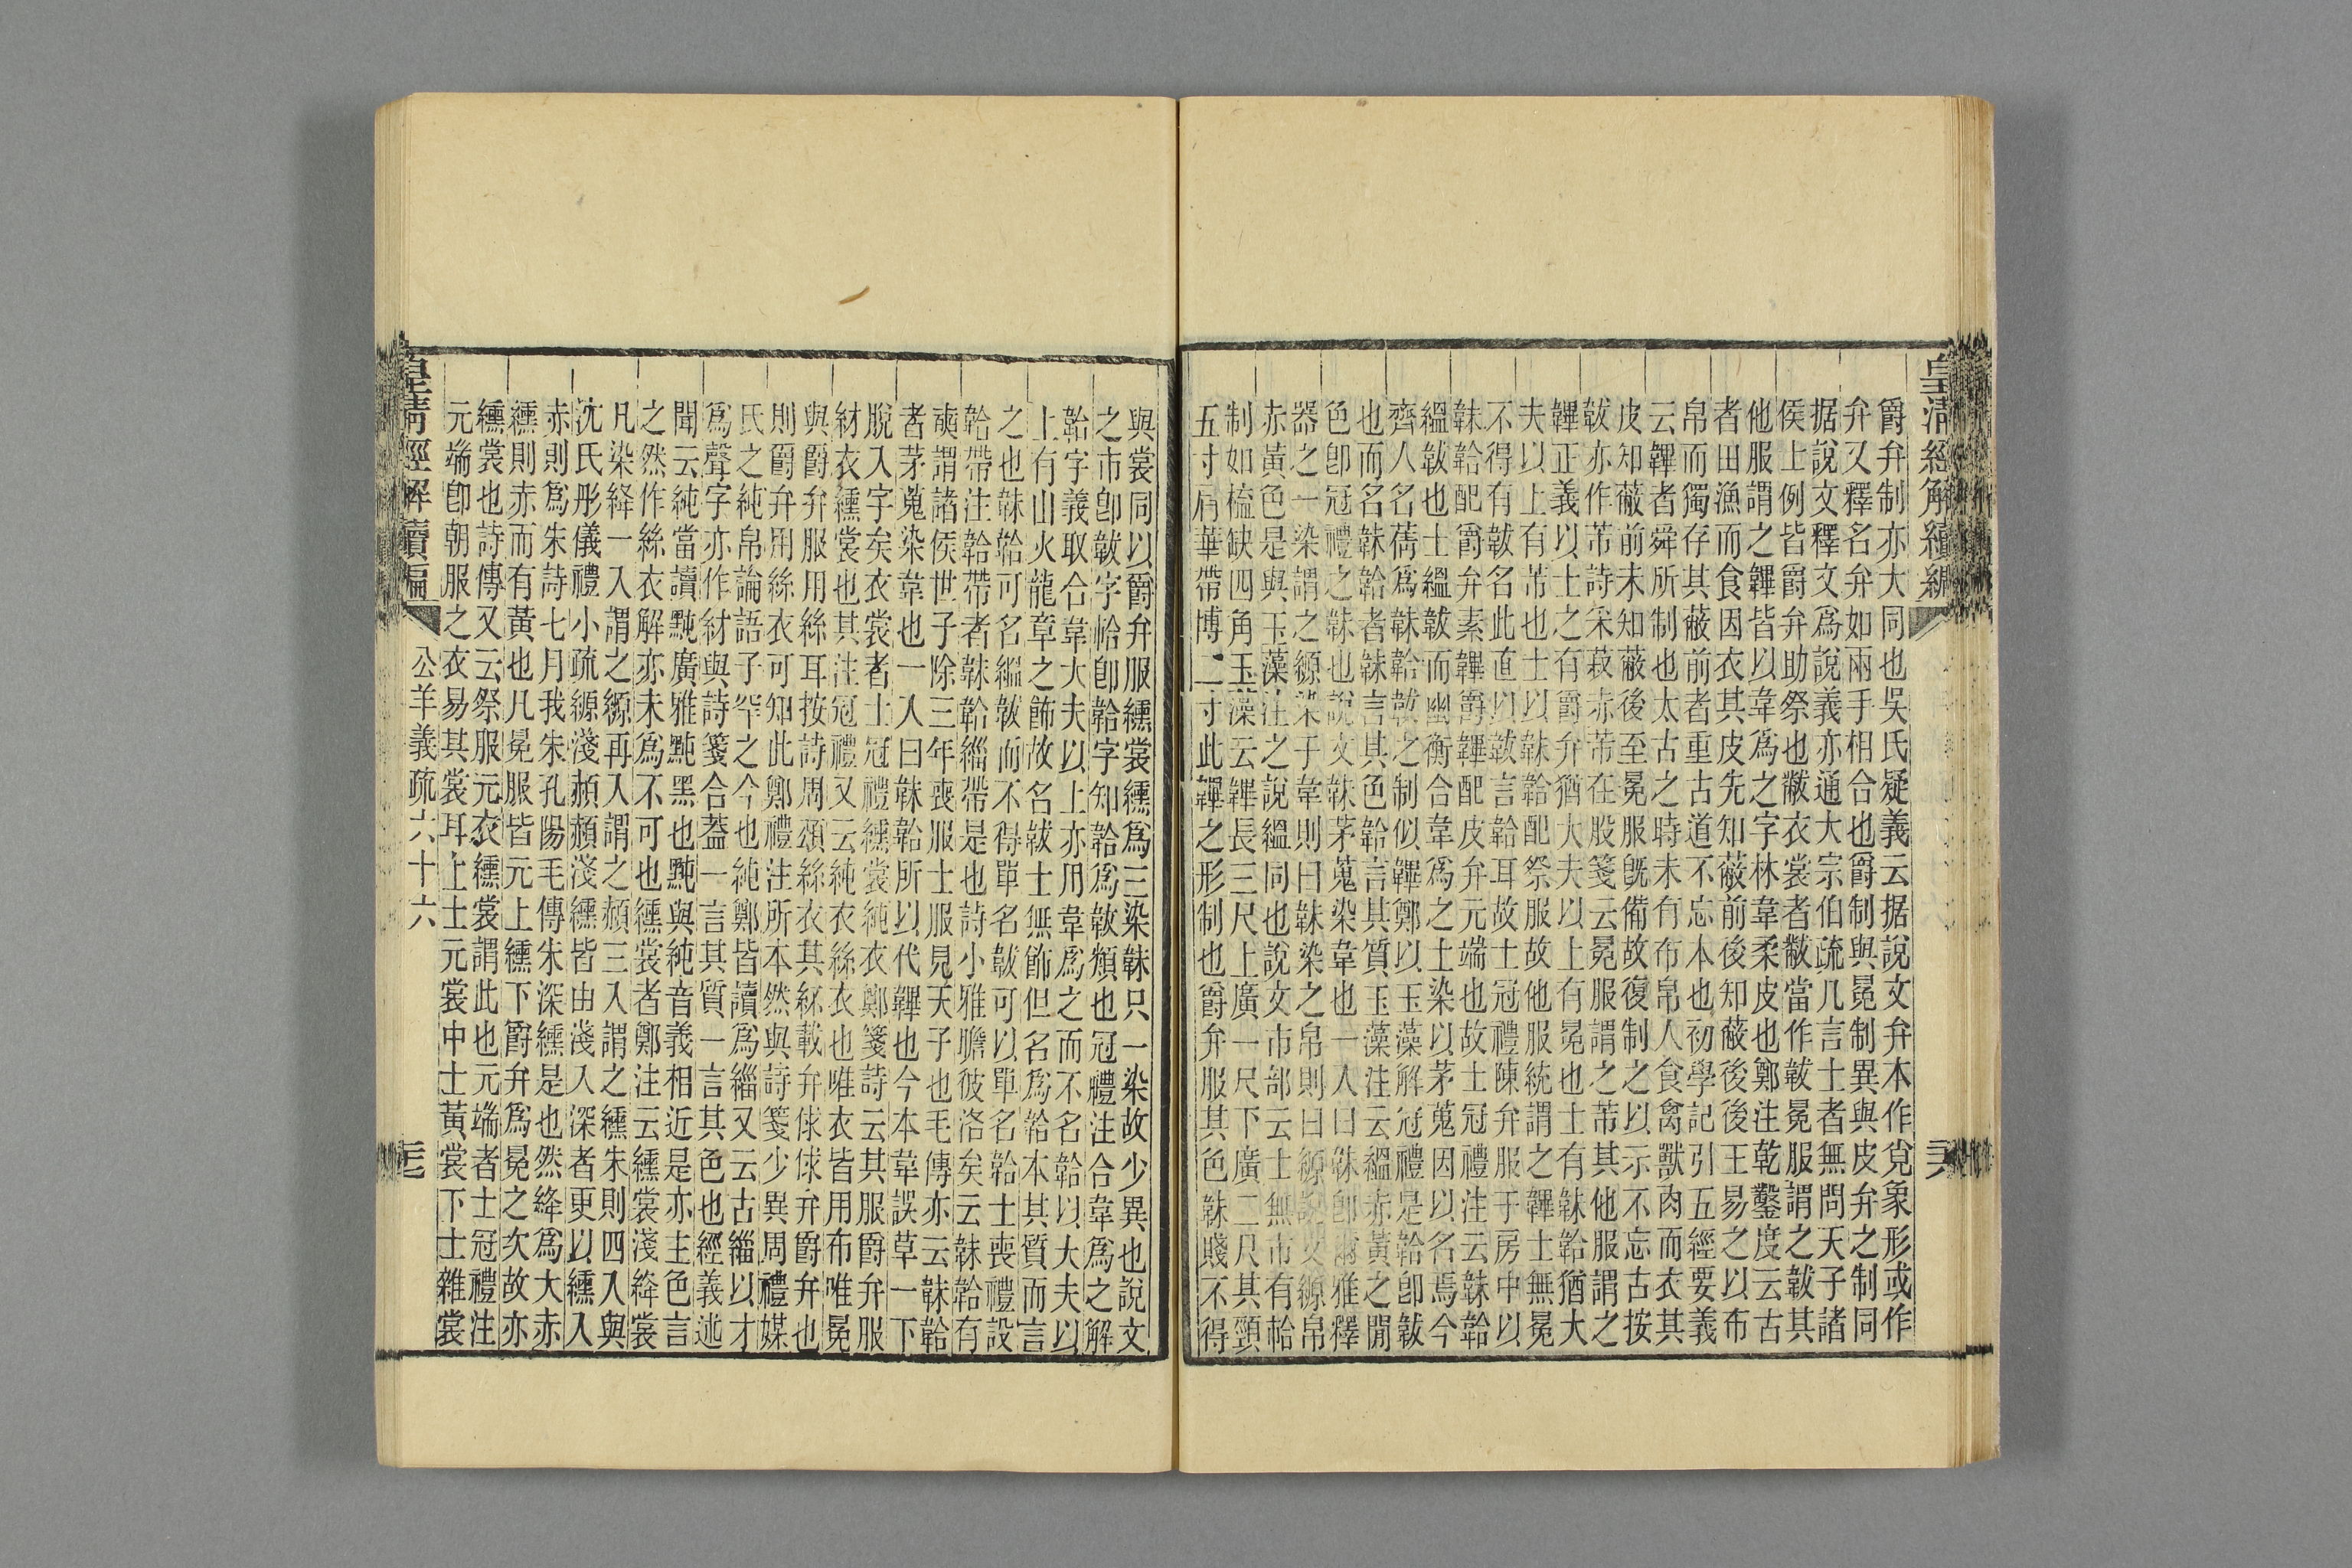 皇清經解續編
爵弁制亦大同也吳氏疑義云据說文弁本作㝸象形或作
弁又釋名弁如兩手相合也爵制與冕制異與皮弁之制同
据說文釋文爲說義亦通大宗伯疏凡言士者無問天子諸
侯上例皆爵弁助祭也敝衣裳者敝當作韍冕服謂之韍其
他服謂之韠皆以韋爲之字林韋柔皮也鄭注乾鑿度云古
者田漁而食因衣其皮先知蔽前後知蔽後後王易之以布
帛而獨存其蔽前者重古道不忘本也初學記引五經要義
云韠者舜所制也太古之時未有布帛人食禽獸肉而衣其
皮知蔽前未知蔽後至冕服旣備故復制之以示不忘古按
韍亦作芾詩采菽赤芾在股箋云冕服謂之芾其他服謂之
韠正義以士之有爵弁猶大夫以上有冕也士有韎韐猶大
夫以上有芾也士以韎韐配祭服故他服統謂之韠士無冕
不得有韍名此直以韍言韐耳故士冠禮陳弁服于房中以
韎韐配爵弁素韠爵韠配皮弁元端也故士冠禮注云韎韐
縕韍也士縕韍而幽衡合韋爲之士染以茅蒐因以名焉今
齊人名蒨爲韎韐韍之制似韠鄭以玉藻解冠禮是韐卽韍
也而名韎韐者韎言其色韐言其質玉藻注云縕赤黃之閒
色卽冠禮之韎也說文韎茅蒐染韋也一入曰韎卽爾雅釋
器之一染謂之縓染于韋則曰韎染之帛則曰縓說文縓帛
赤黃色是與玉藻注之說縕同也說文巿部云士無巿有帢
制如榼缺四角玉藻云韠長三尺上廣一尺下廣二尺其頸
五寸肩革帶博二寸此韠之形制也爵弁服其色韎賤不得
與裳同以爵弁服纁裳纁爲三染韎只一染故少異也說文
之巿卽韍字帢卽韐字知韐爲韍類也冠禮注合韋爲之解
韐字義取合韋大夫以上亦用韋爲之而不名韐以大夫以
上有山火龍章之飾故名韍士無飾但名爲韐本其質而言
之也韎韐可名縕韍而不得單名韍可以單名韐士喪禮設
韐帶注韐帶者韎韐緇帶是也詩小雅瞻彼洛矣云韎韐有
奭謂諸侯世子除三年喪服士服見天子也毛傳亦云韎韐
者茅蒐染韋也一入曰韎韐所以代韠也今本韋誤草一下
脫入字矣衣裳者士冠禮纁裳純衣鄭箋詩云其服爵弁服
材衣纁裳也其注冠禮又云純衣絲衣也唯衣皆用布唯冕
與爵弁服用絲耳按詩周頌絲衣其紑載弁俅俅弁爵弁也
則爵弁亦用絲衣可知此鄭禮注所本然與詩箋少異周禮媒
氏之純帛論語子罕之今也純鄭皆讀爲緇又云古緇以才
爲聲字亦作材與詩箋合蓋一言其質一言其色也經義述
聞云純當讀黗廣雅黗黑也黗與純音義相近是亦主色言
之然作絲衣解亦未爲不可也纁裳者鄭注云纁裳淺絳裳
凡染絳一入謂之縓再入謂之赬三入謂之纁朱則四入與
沈氏彤儀禮小疏縓淺赬赬淺纁皆由淺入深者更以纁入
赤則爲朱詩七月我朱孔陽毛傳朱深纁是也然絳爲大赤
纁則赤而有黃也凡冕服皆元上纁下爵弁爲冕之次故亦
纁裳也詩傳又云祭服元衣纁裳謂此也元端者士冠禮注
元端卽朝服之衣易其裳耳上士元裳中士黃裳下士雜裳
皇清經解續編
公羊義疏六十六